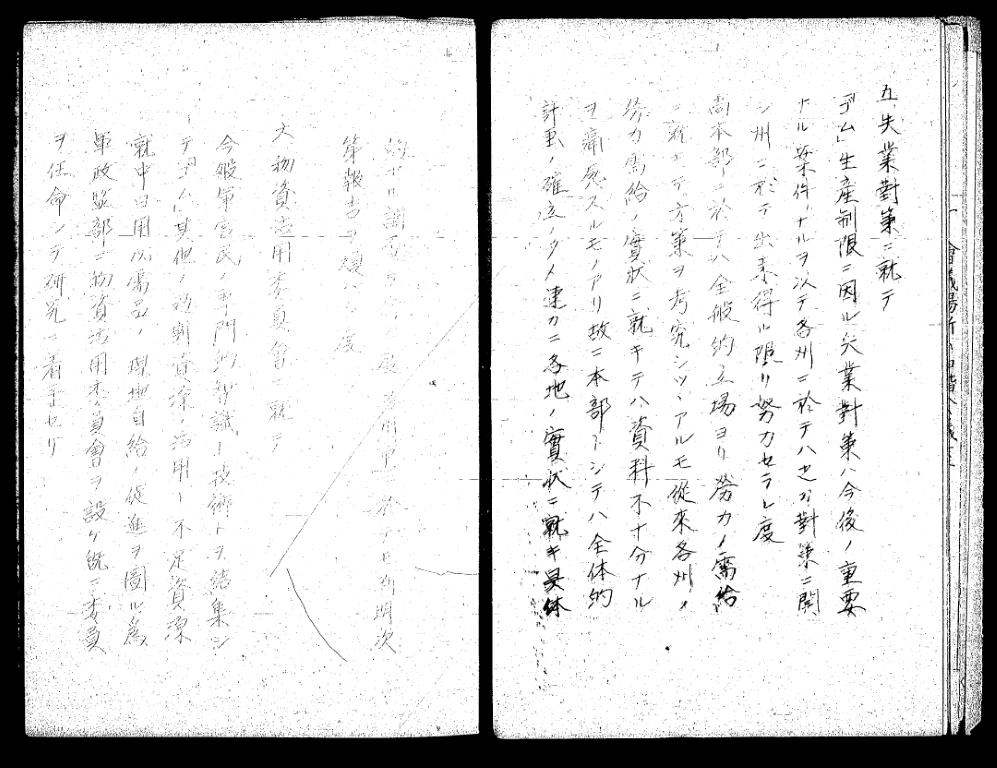 五、失業對策ニ就テ
「ゴム」生産制限ニ因ル失業對策ハ今後ノ重要
ナル案件ナルヲ以テ各州ニ於テハ 對策ニ関
シ州ニ於テ出来得ル限リ努力セラレ度
尚本部ニ於テハ全般的立場ヨリ勞力ノ需給
ニ就キテ方策ヲ考究シツヽアルモ從來各州ノ
勞力需給ノ實状ニ就キテハ資料不十分ナル
ヲ痛感スルモノアリ故ニ本部トシテハ全体的
計畫ノ確立ノタメ速カニ各地ノ實状ニ就キ具体
的ナル調査 度 州 於テモ判明次
第報告ヲ煩ハシ度
六、物資活用委員會ニ就テ
今般軍官民ノ専門的智識ト技術トヲ結集シ
テ「ゴム」其他ノ過剰資源ノ活用ト不足資源
就中日用必需品ノ現地自給ノ促進ヲ圖ル為
軍政監部ニ物資活用委員會ヲ設ケ既ニ委員
ヲ任命シテ研究ニ着手セリ
會議場所